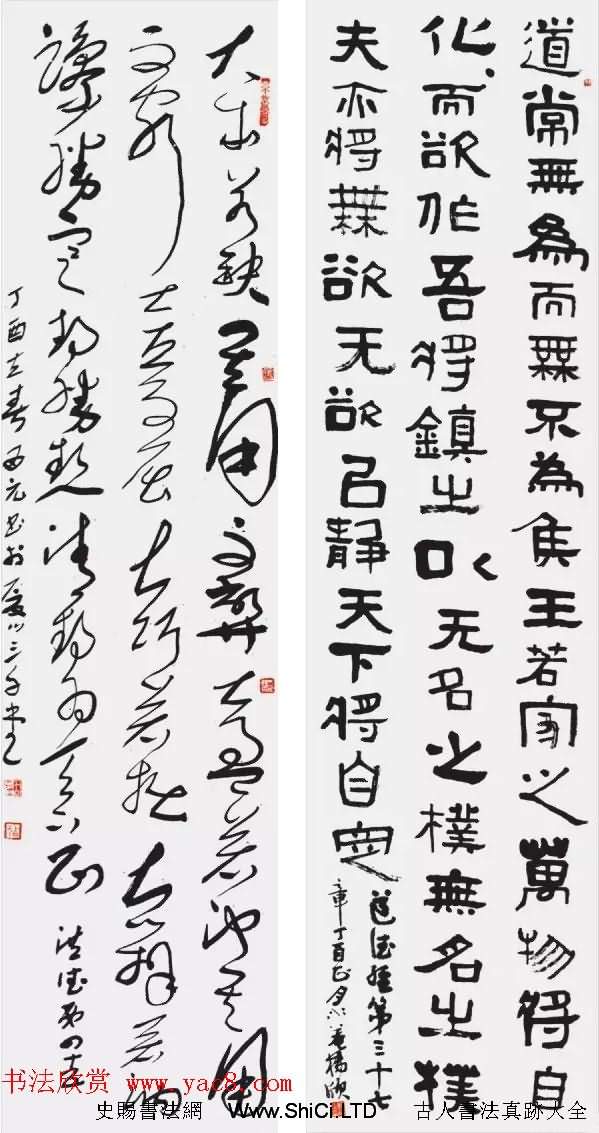 道常無為而無不為矦王若守之萬物將自
化而欲作吾將鎮之以无名之樸無名之樸
夫亦將無欲无欲以靜天下將自定
道德經第三十七
章丁酉正月
大成若缺其用不弊大盈若沖其用
不窮大直若屈大巧若拙大辯若訥
躁勝寒靜勝熱清靜為天下正
道德第四十五
丁酉立春
书法欣赏 www.yac8.com
史賜書法網 www.ShiCi.LTD 古人書法真跡大全